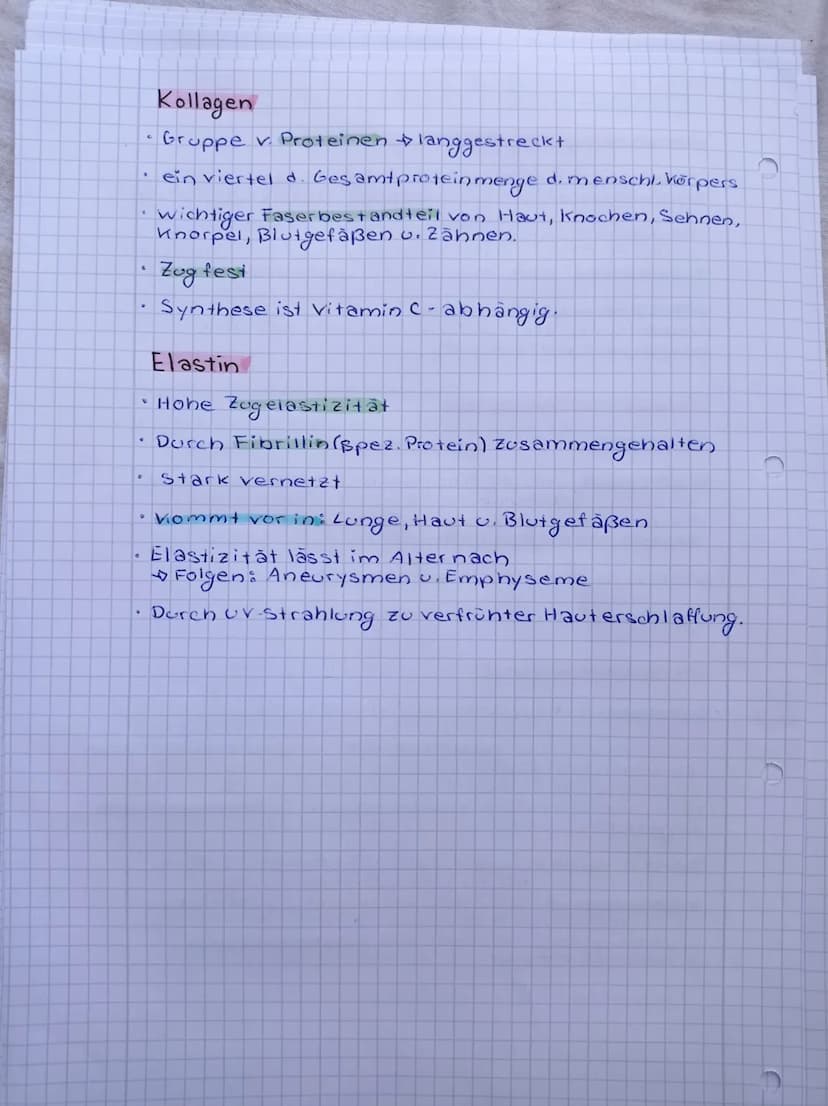 Kollagen
· Gruppe v. Proteinen → langgestreckt
· ein viertel d. Gesamtproteinmenge d. menschl. Körpers
· wichtiger Faserbestandteil von Haut, Knochen, Sehnen,
Knorpel, Blutgefäßen u. Zähnen.
· Zugfest
· Synthese ist Vitamin C - abhängig.
Elastin
· Hohe Zugelastizität
· Durch Fibrillin (spez. Protein) zusammengehalten
· Stark vernetzt
· Kommt vor in: Lunge, Haut u. Blutgefäßen
· Elastizität lässt im Alter nach
→ Folgen: Aneurysmen u. Emphyseme
· Durch UV-Strahlung zu verfrühter Hauterschlaffung.